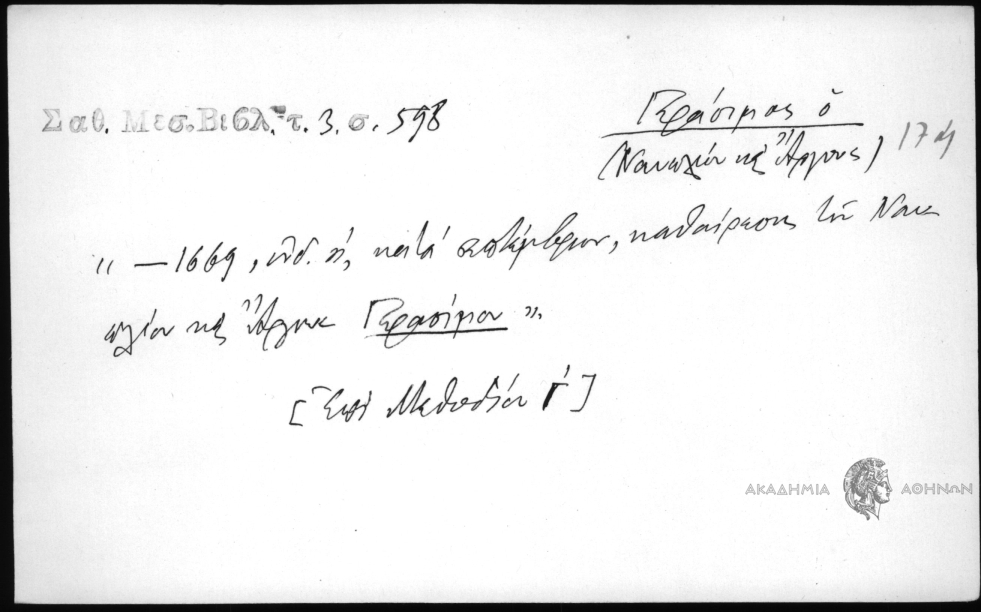 Σαθ. Μεσ. Βιβλ. τ. 3. σ. 598
Γεράσιμος ὁ
(Ναυπλίου κὶ Ἄργους) 174
" — 1669, ἰνδ. η', κατὰ σεπτέμβριον, καθαίρεσις τοῦ Ναυ
πλίου κὶ Ἄργους Γερασίμου ".
[Ἐπὶ Μεθοδίου Γ']
ΑΚΑΔΗΜΙΑ ΑΘΗΝΩΝ